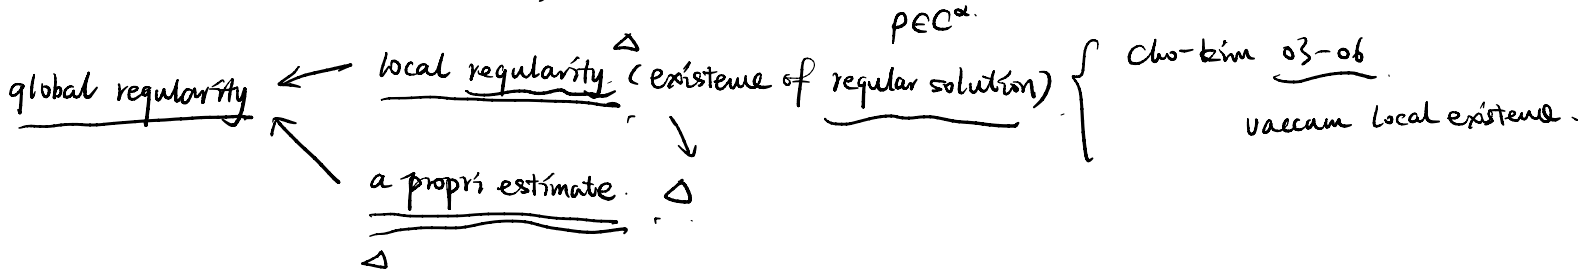 ρ∈C^α.
global regularity ← local regularity. (existence of regular solution) { Cho-Kim 03-06
vaccum local existence.
a propri estimate.